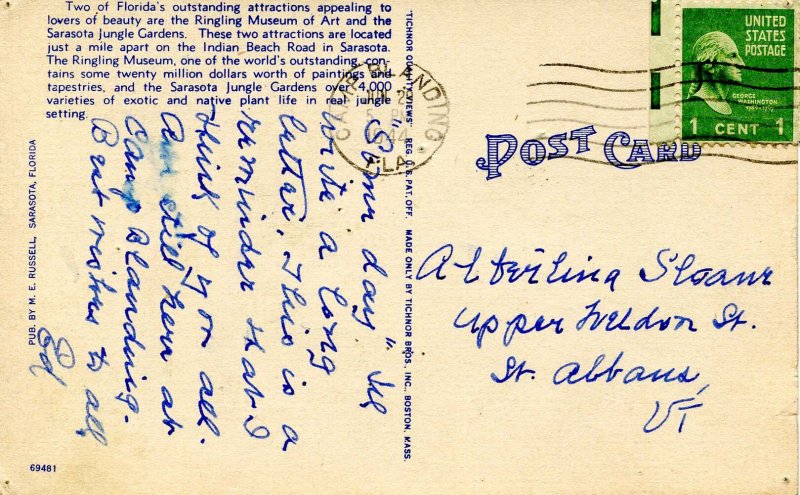 Two of Florida's outstanding attractions appealing to
lovers of beauty are the Ringling Museum of Art and the
Sarasota Jungle Gardens. These two attractions are located
just a mile apart on the Indian Beach Road in Sarasota.
The Ringling Museum, one of the world's outstanding, con-
tains some twenty million dollars worth of paintings and
tapestries, and the Sarasota Jungle Gardens over 4,000
varieties of exotic and native plant life in real jungle
setting.
"Some day" I'll
write a long
letter, This is a
reminder that I
think of you all.
Am still here at
Camp Blanding.
Best wishes to all,
Ed
PUB. BY M. E. RUSSELL, SARASOTA, FLORIDA
69481
"TICHNOR QUALITY VIEWS" REG. U. S. PAT. OFF. MADE ONLY BY TICHNOR BROS., INC. BOSTON, MASS.
CAMP BLANDING
1944
FLA.
UNITED
STATES
POSTAGE
GEORGE
WASHINGTON
1789-1797
1 CENT 1
POST CARD
A Sterling Sloane
Upper Weldon St.
St. Albans,
VT